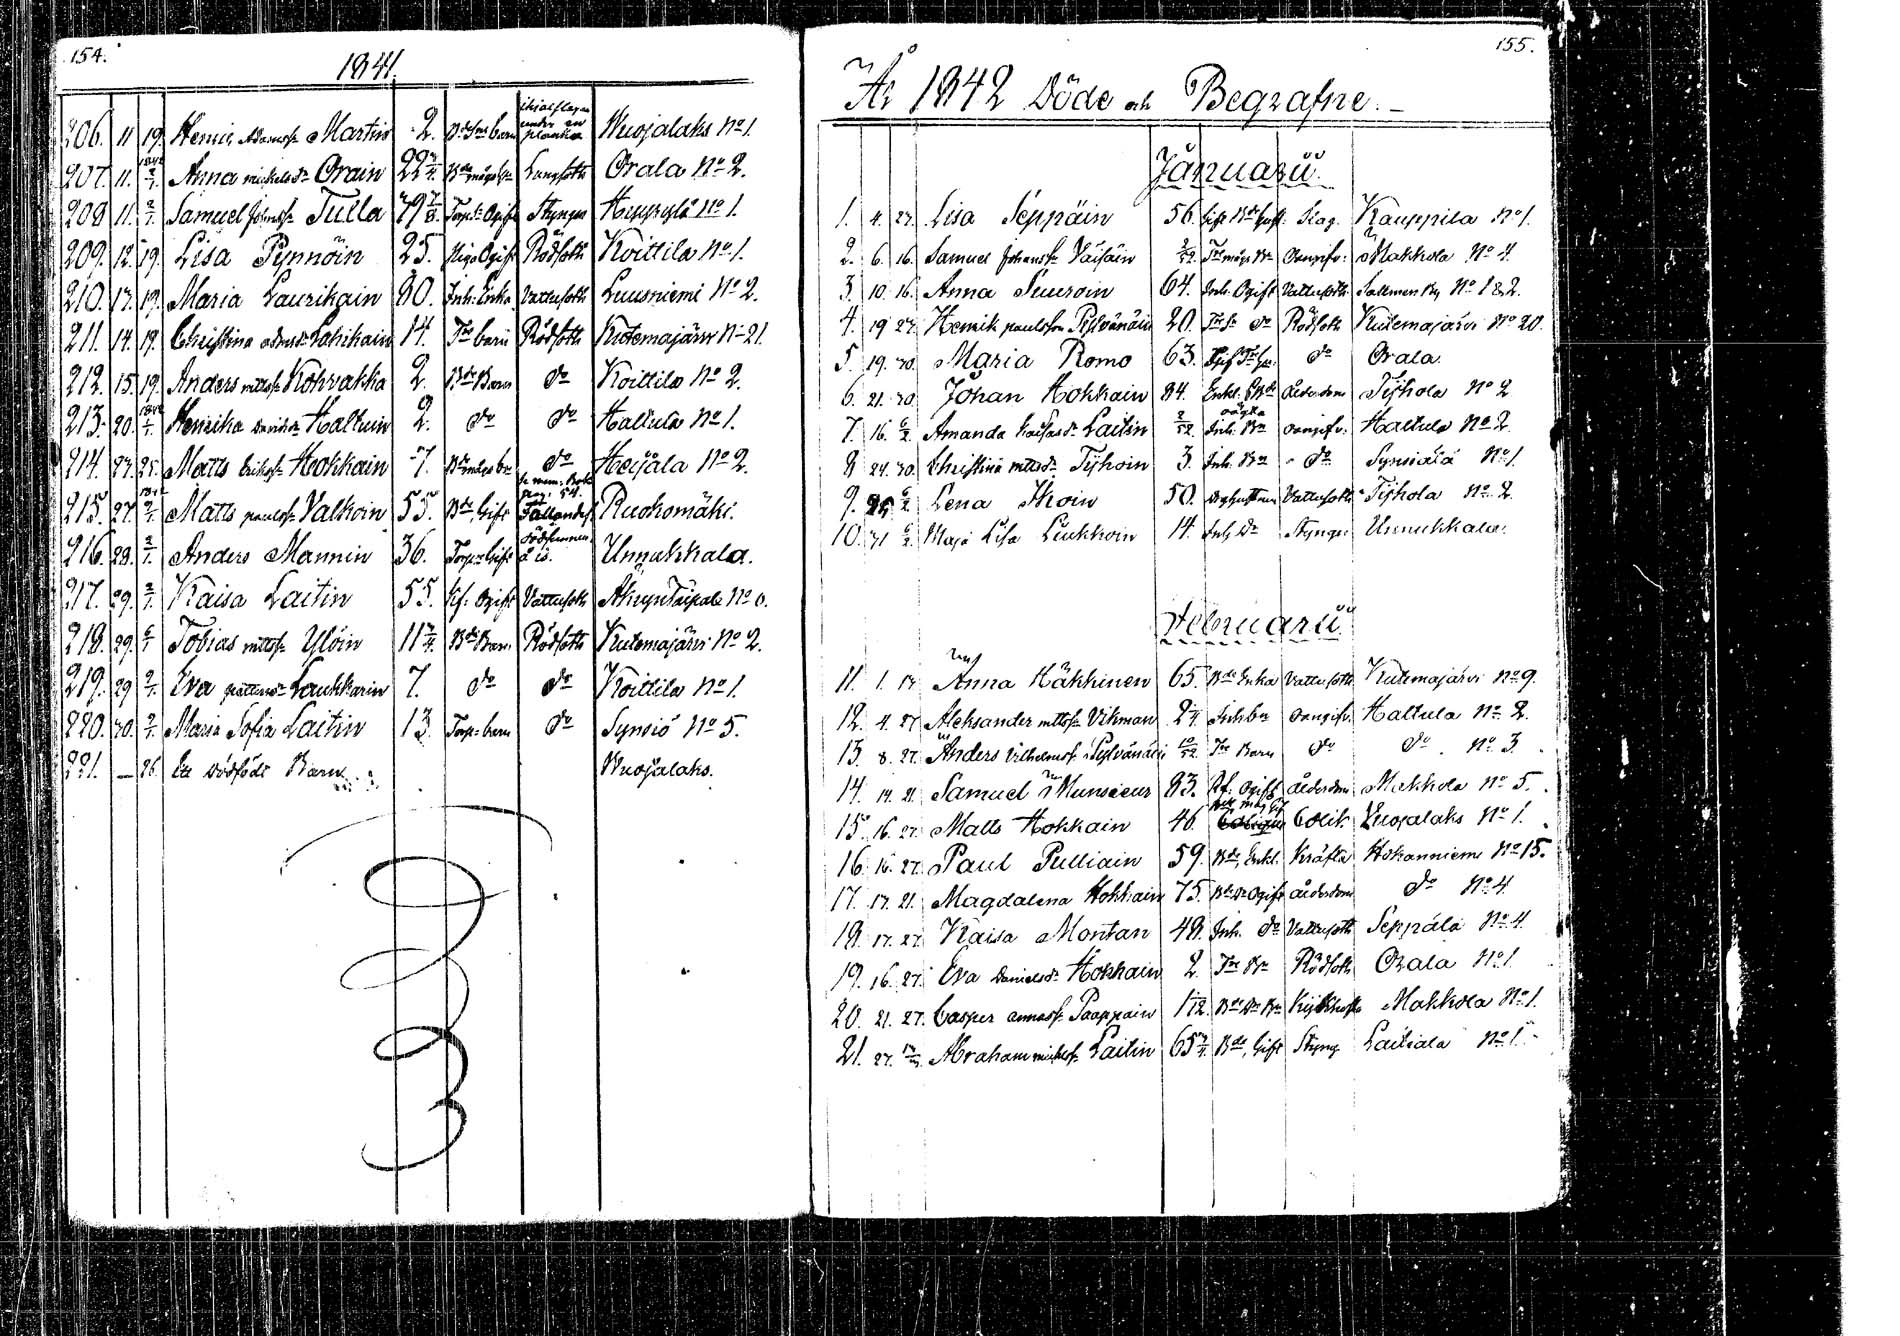 154.
1841.
206. 11 19. Henric Adamss: Martin 2. Bdes barn ihjälslagen under en planka Wuojalaks No 1.
207. 11. 1842 2/1. Anna mickelsdr Orain 22 3/4. Bde mågs hu Lungsoth Orala No 2.
208 11. 2/1. Samuel Johanss: Tulla 79 7/8. Torp: Ogift Styngn No 1.
209. 12. 19. Lisa Pynnöin 25. Piga Ogift Rödsoth Koittila No 1.
210. 13. 19. Maria Laurikain 80. Inh: Enka Vattusoth Luusniemi No 2.
211. 14. 19. Christina adamsdr Lahikain 14. Torp barn Rödsoth Kutemajärvi No 21.
212. 15. 19. Anders mttss: Kohvakka 2. Bde Barn do Koittila No 2.
213. 20. 1842 2/1. Henrika Davidsdr Haltuin 2. do do Haltula No 1.
214. 23. 25. Matts Erikss: Hokkain 7. Bde mågs bn do Heijala No 2.
215. 27. 1842 2/1. Matts paulss: Valkoin 55. Bde, Gift se mem: Bok pag: 54. Fallandes. Ruokomäki.
216. 28. 2/1. Anders Mannin 36. Torp: Gift dödfunnen å is. Unnukkala.
217. 29. 2/1. Kaisa Laitin 55. Kf: Ogift Vattusoth No 6.
218. 29. 6/1 Tobias mttss: Ylöin 11 3/4. Bde Barn Rödsoth Kutemajärvi No 2.
219. 29 2/1. Eva Laukkarin 7. do do Koittila No 1.
220. 30. 2/1. Maria Sofia Laitin 13. Torp: barn do Synsiö No 5.
221. — 26. Ett Dödfödt Barn Wuojalaks.
155.
År 1842 Döde och Begrafne. —
Januarii.
1. 4. 23. Lisa Seppäin 56. Slag. Kauppila No 1.
2. 6. 16. Samuel Johanss: Väisäin 2/52. Tor mågs Bn Oangifv: Makkola No 4.
3. 10. 16. Anna Suuroin 64. Inh. Ogift Vattusoth No 1 & 2.
4. 19 23. Henrik paulsson Pylvänäin 20. do Rödsoth Kutemajärvi No 20.
5. 19. 30. Maria Romo 63. do Orala.
6. 21. 30 Johan Hokkain 84. Enkl. ålderdom Tyhola No 2
7. 16. 6/2. Amanda Kaisasdr Laitin 2/52. oägta Inh: Bn oangifv: Haltula No 2.
8 24. 30. Christina mttsdr Tyhoin 3. Inh. Bn do Synsiälä No 1.
9. 25 6/2 Lena Ihoin 50. Vattusoth Tyhola No 2.
10. 31 6/2. Maja Lisa Liukkoin 14. Inh Dr Styngn Unnukkala.
Februarii.
11. 1. 13 Anna Häkkinen 65. Bde Enka Vattusoth Kutemajärvi No 9.
12. 4. 27 Aleksander mttss: Vikman 2/4. Inh bn oangifv. Haltula No 2.
13. 8. 27. Anders Vilhelmss: Pylvänäin 10/52. Tor Barn do do. No 3.
14. 14. 21. Samuel Munsieur 83. Rf: Ogift ålderdom Makkola No 5.
15. 16. 27. Matts Hokkain 46. Colik Vuojalaks No 1.
16. 16. 27. Paul Pulliain 59. Bde, Enkl. Kräfta Hokanniemi No 15.
17. 17. 21. Magdalena Hokkain 75. Bde Dr Ogift ålderdom do No 4.
18. 17. 27. Kaisa Montan 48. Inh. do Vattusoth Seppälä No 4.
19. 16. 27. Eva Danielsdr Hokkain 2. Tor Bn Rödsoth Orala No 1.
20. 21. 27. Casper annass: Paappain 1/12. Bde Dr Bn Kikhosta Makkola No 1.
21. 27. 13/3 Abraham mickelss: Laitin 65 3/4. Bde, Gift Styng Laitiala No 1.